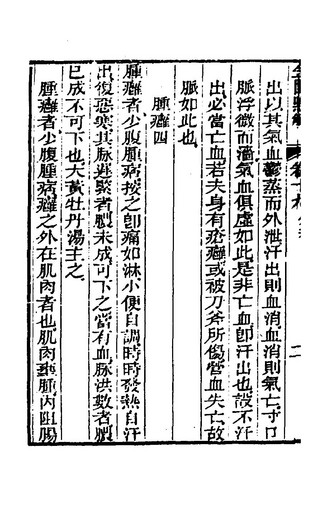 出以其氣血鬱蒸而外泄汗出則血消血消則氣亡寸口
脈浮微而濇氣血俱虛如此是非亡血即汗出也設不汗
出必當亡血若夫身有瘡癰或被刀斧所傷營血失亡故
脈如此也
腫癰四
腫癰者少腹腫痞按之卽痛如淋小便自調時時發熱自汗
出復惡寒其脉遲緊者膿未成可下之當有血脉洪數者膿
已成不可下也大黃牡丹湯主之
腫癰者少腹腫病癰之外在肌肉者也肌肉癰腫內阻腸